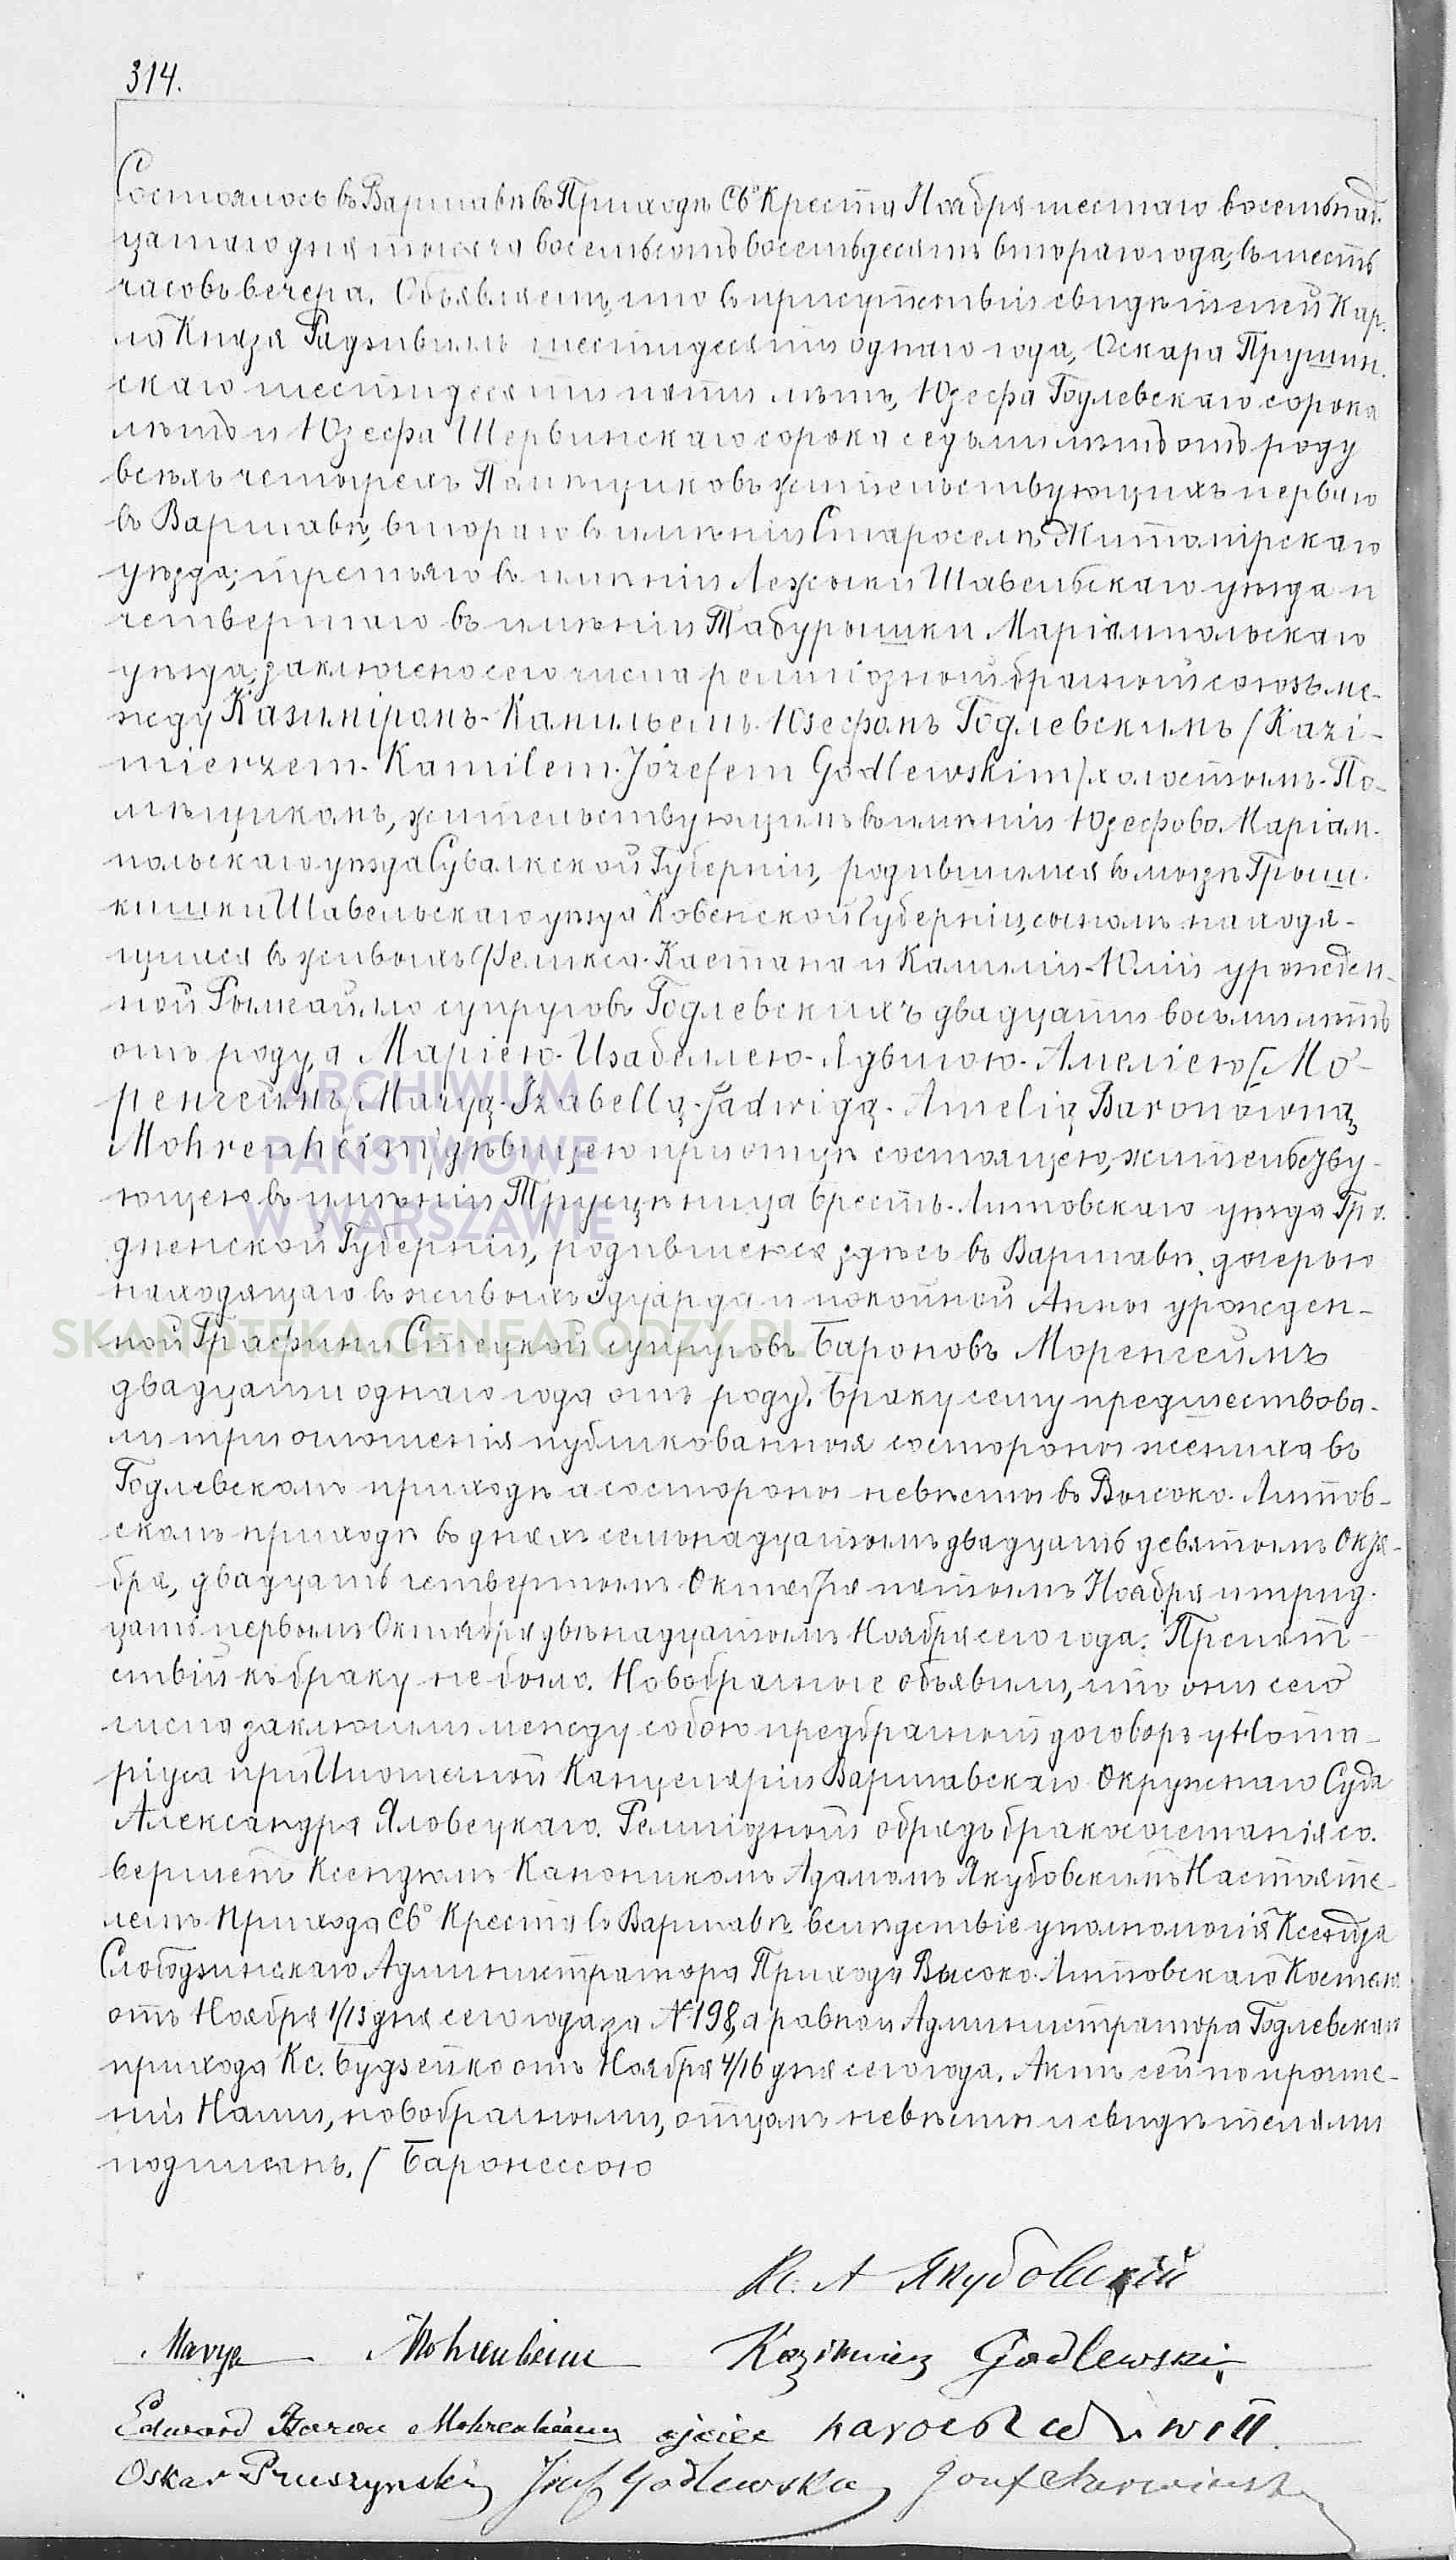 314.
Состоялось въ Варшавѣ въ Приходѣ Свº Креста Ноября шестаго восемьнад-
цатаго дня тысяча восемьсотъ восемьдесятъ втораго года, въ шесть
часовъ вечера. Объявляемъ, что въ присутствіи свидѣтелей Кар-
ла Князя Радзивиллъ шестидесяти однаго года, Оскара Прушин-
скаго шестидесяти пяти лѣтъ, Юзефа Годлевскаго сорока
лѣтъ и Юзефа Щервинскаго сорока седьми лѣтъ отъ роду
всѣхъ четырехъ Помѣщиковъ жительствующихъ перваго
въ Варшавѣ, втораго въ имѣніи Староселѣ Житомірскаго
уѣзда, третьяго въ имѣніи Шавельскаго уѣзда и
четвертаго въ имѣніи Табурышки Маріампольскаго
уѣзда, заключенъ сего числа религіозный брачный союзъ ме-
жду Казиміромъ-Камильемъ-Юзефомъ Годлевскимъ /Kazi-
mierzem-Kamilem-Józefem Godlewskim/ холостымъ-По-
мѣщикомъ, жительствующимъ въ имѣніи Юзефово Маріам-
польскаго уѣзда Сувалкской Губерніи, родившимся въ мызѣ Грыш-
кишки Шавельскаго уѣзда Ковенской Губерніи, сыномъ находя-
щихся въ живыхъ Феликса-Каетана и Камиліи-Юліи урожден-
ной Рымкайло супруговъ Годлевскихъ двадцати восьми лѣтъ
отъ роду, а Маріею-Изабеллею-Ядвигою-Амеліею /Мо-
ренгеймъ/ Maryą-Izabellą-Jadwigą-Amelią Baronówną
Mohrenheim/ дѣвицею при отцѣ состоящею, жительству-
ющею въ имѣніи Брестъ-Литовскаго уѣзда Гро-
дненской Губерніи, родившеюся здѣсь въ Варшавѣ, дочерью
находящаго въ живыхъ Эдуарда и покойной Анны урожден-
ной Графини Стецкой супруговъ Бароновъ Моренгеймъ
двадцати однаго года отъ роду. Браку сему предшествова-
ли три оглошенія публикованныя со стороны жениха въ
Годлевскомъ приходѣ а со стороны невѣсты въ Высоко-Литов-
скомъ приходѣ въ дняхъ семьнадцатомъ двадцать девятомъ Октя-
бря, двадцать четвертомъ Октября пятомъ Ноября и трид-
цать первомъ Октября двѣнадцатомъ Ноября сего года. Препят-
ствій къ браку не было. Новобрачные объявили, что они сего
числа заключили между собою предбрачный договоръ у Нота-
ріуса при Ипотечной Канцеляріи Варшавскаго Окружнаго Суда
Александра Яловецкаго. Религіозный обрядъ бракосочетанія со-
вершенъ Ксендзомъ Каноникомъ Адамомъ Якубовскимъ Настояте-
лемъ Прихода Свº Креста въ Варшавѣ вслѣдствіе уполномочія Ксендза
Слободзинскаго Администратора Прихода Высоко-Литовскаго Костела
отъ Ноября 1/13 дня сего года за № 198, а равно и Администратора Годлевскаго
прихода Кс. Будзейко отъ Ноября 4/16 дня сего года. Актъ сей по прочте-
ніи Нами, новобрачными, отцомъ невѣсты и свидѣтелями
подписанъ. / Баронессою
Кс. А Якубовскій
Marya Mohrenheim Kazimierz Godlewski
Edward Baron Mohrenheim ojciec Karol Radziwiłł
Oskar Pruszyński Józef Godlewski Józef
ARCHIWUM
PAŃSTWOWE
W WARSZAWIE
SKANOTEKA.GENEALODZY.PL